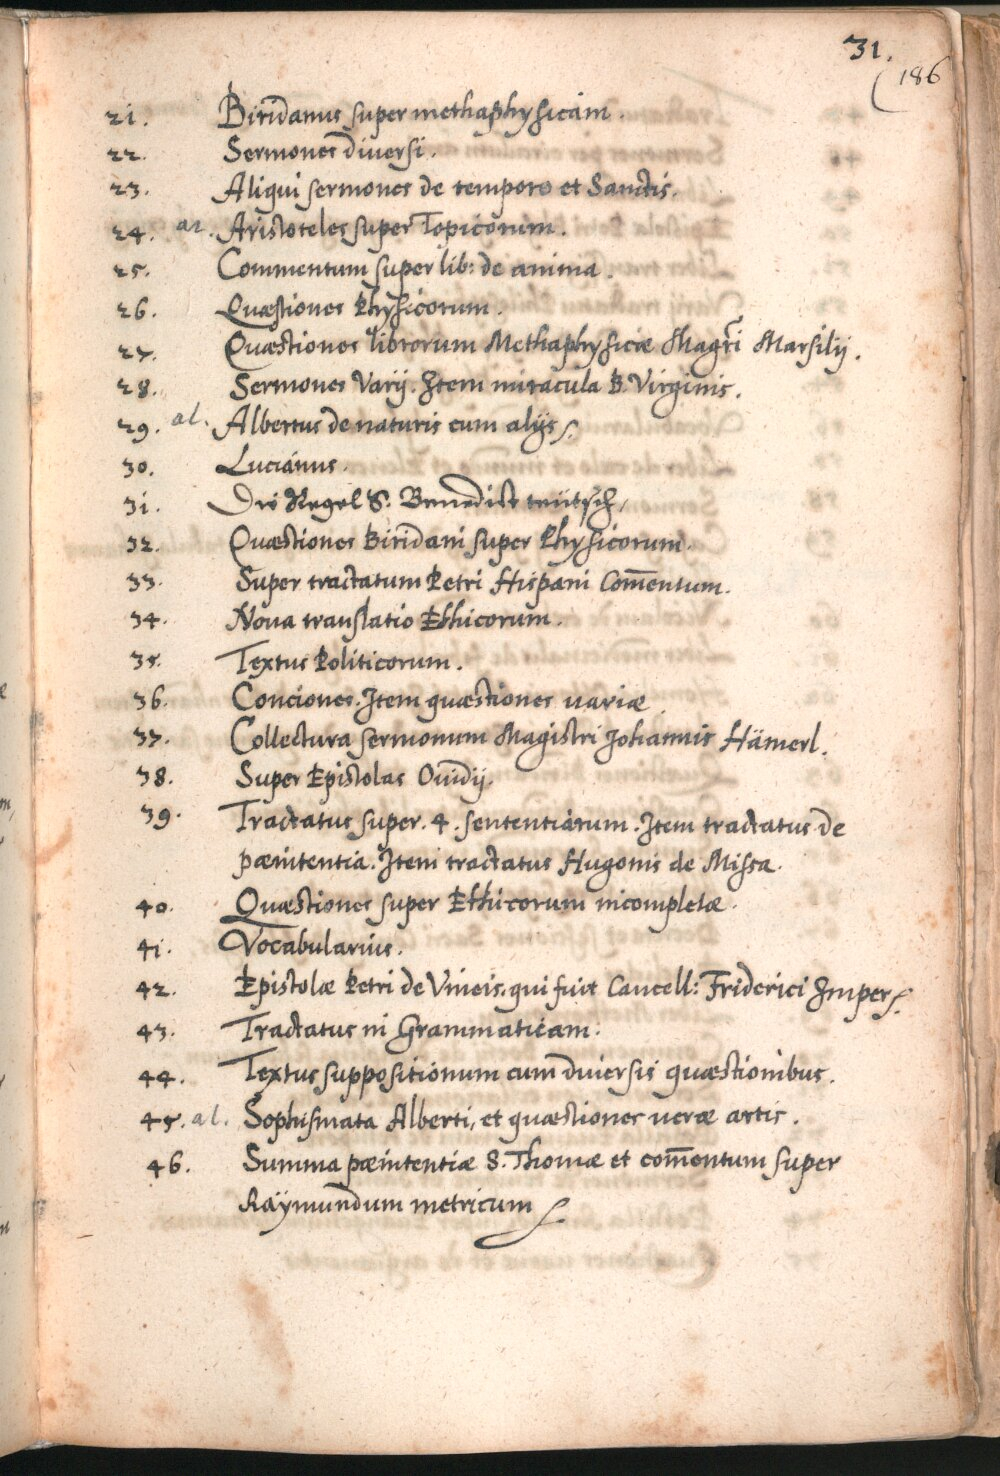 31.
(186
21. Biridanus super methaphysicam.
22. Sermones diuersi.
23. Aliqui sermones de tempore et Sanctis.
24. ar. Aristoteles super Topicorum.
25. Commentum super lib: de anima.
26. Quæstiones Physicorum.
27. Quæstiones librorum Methaphysicæ Magr̃i Marsilij.
28. Sermones Varij. Item miracula B. Virginis.
29. al. Albertus de naturis cum alijs.
30. Lucianus.
31. Die Regel S. Benedict teütsch.
32. Quæstiones Biridani super Physicorum.
33. Super tractatum Petri Hispani Com̄entum.
34. Noua translatio Ethicorum.
35. Textus Politicorum.
36. Conciones. Item quæstiones uariæ.
37. Collectura sermonum Magistri Johannis Hämerl.
38. Super Epistolas Ouidij.
39. Tractatus super. 4. sententiarum. Item tractatus de
pænitentia. Item tractatus Hugonis de Missa.
40. Quæstiones super Ethicorum incompletæ.
41. Vocabularius.
42. Epistolæ Petri de Vineis, qui fuit Cancell: Friderici Imper.
43. Tractatus in Grammaticam.
44. Textus suppositionum cum diuersis quæstionibus.
45. al. Sophismata Alberti, et quæstiones ueræ artis.
46. Summa pænitentiæ S. Thomæ et com̄entum super
Raÿmundum metricum